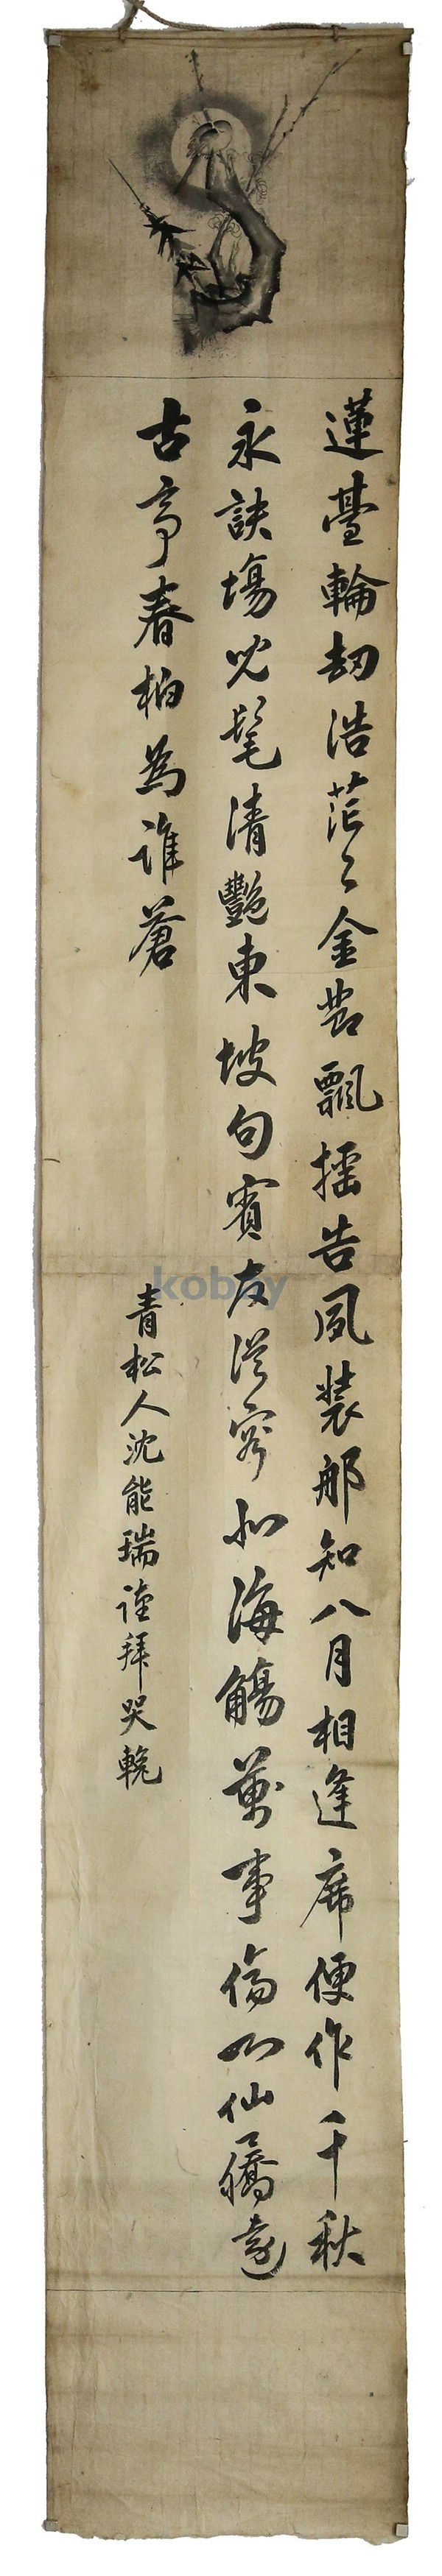 蓮臺輪劫浩茫〻金昔飄摇告夙装那知八月相逢席便作千秋
永訣場児髦清艶東坡句賓友從容北海觴萬事傷心仙驕遠
古亭春柏為誰蒼
青松人沈能瑞謹拜哭輓
kobay